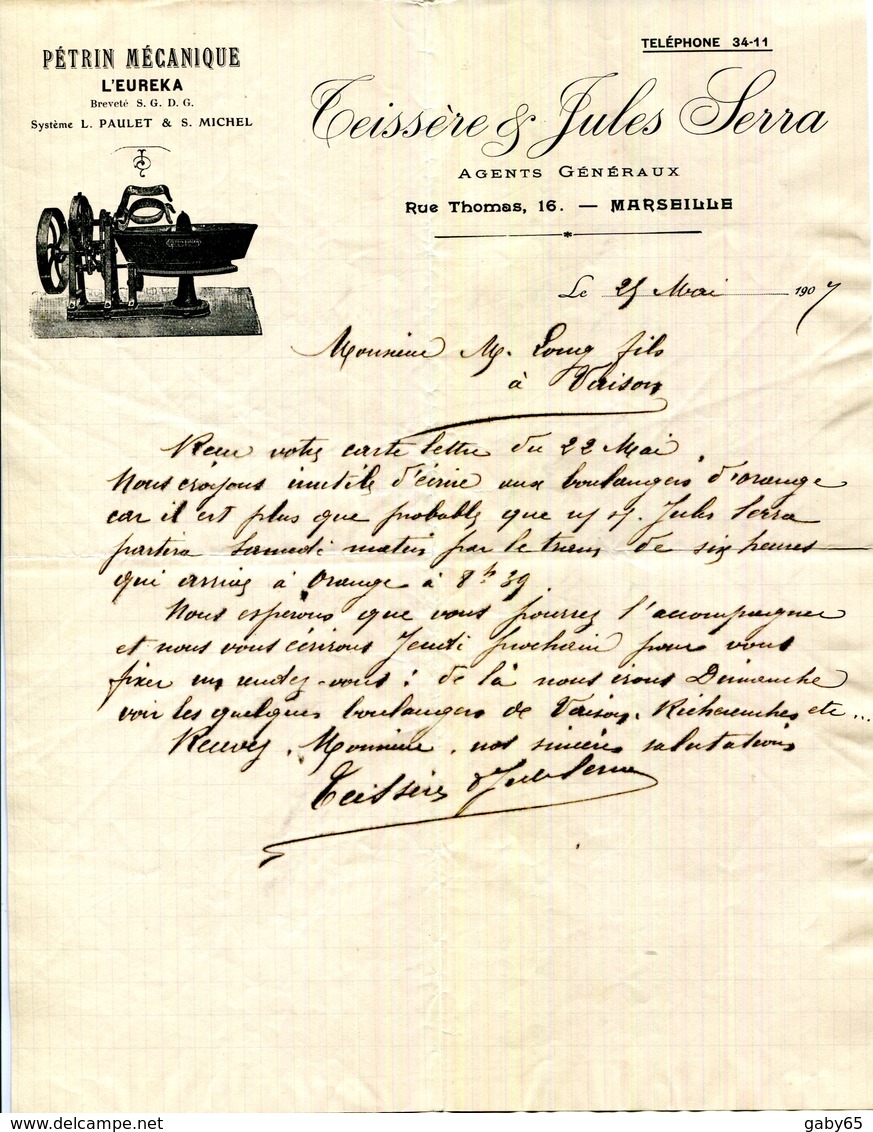 TELÉPHONE 34-11
PÉTRIN MÉCANIQUE
L'EUREKA
Breveté S. G. D. G.
Système L. PAULET & S. MICHEL
Teissère & Jules Serra
AGENTS GÉNÉRAUX
Rue Thomas, 16. — MARSEILLE
Le 25 Mai 1907
Monsieur M. Long fils
à Vaison
Reçu votre carte lettre du 22 Mai.
Nous croyons inutile d'écrire aux boulangers d'Orange
car il est plus que probable que Jules Serra
partira Samedi matin par le train de six heures
qui arrive à Orange à 8h 39
Nous espérons que vous pourrez l'accompagner
et nous vous écrirons Jeudi prochain pour vous
fixer un rendez-vous : de là nous irons Dimanche
voir les quelques boulangers de Vaison, Richerenches etc...
Recevez, Monsieur, nos sincères salutations
Teissère & Jules Serra
www.delcampe.net
gaby65